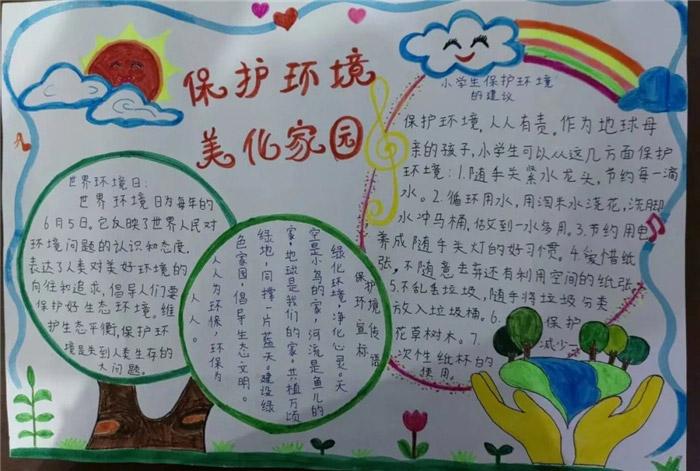 保护环境
美化家园
世界环境日:
世界环境日为每年的
6月5日。它反映了世界人民对
环境问题的认识和态度,
表达了人类对美好环境的
向往和追求,倡导人们要
保护好生态环境,维
护生态平衡,保护环
境是关到人类生存的
大问题。
保护环境宣传标语
绿化环境,净化心灵。天
空是小鸟的家,河流是鱼儿的
家,地球是我们的家。共植万顷
绿地,同撑一片蓝天。建设绿
色家园,倡导生态文明。
人人为环保,环保为
人人。
小学生保护环境
的建议
保护环境,人人有责。作为地球母
亲的孩子,小学生可以从这几方面保护
环境:1.随手关紧水龙头,节约每一滴
水。2.循环用水,用淘米水浇花,洗脚
水冲马桶,做到一水多用。3.节约用电
养成随手关灯的好习惯。4.爱惜纸
张,不随意丢弃还有利用空间的纸张。
5.不乱丢垃圾,随手将垃圾分类
放入垃圾桶。6.保护
花草树木。7.减少一
次性纸杯的
使用。